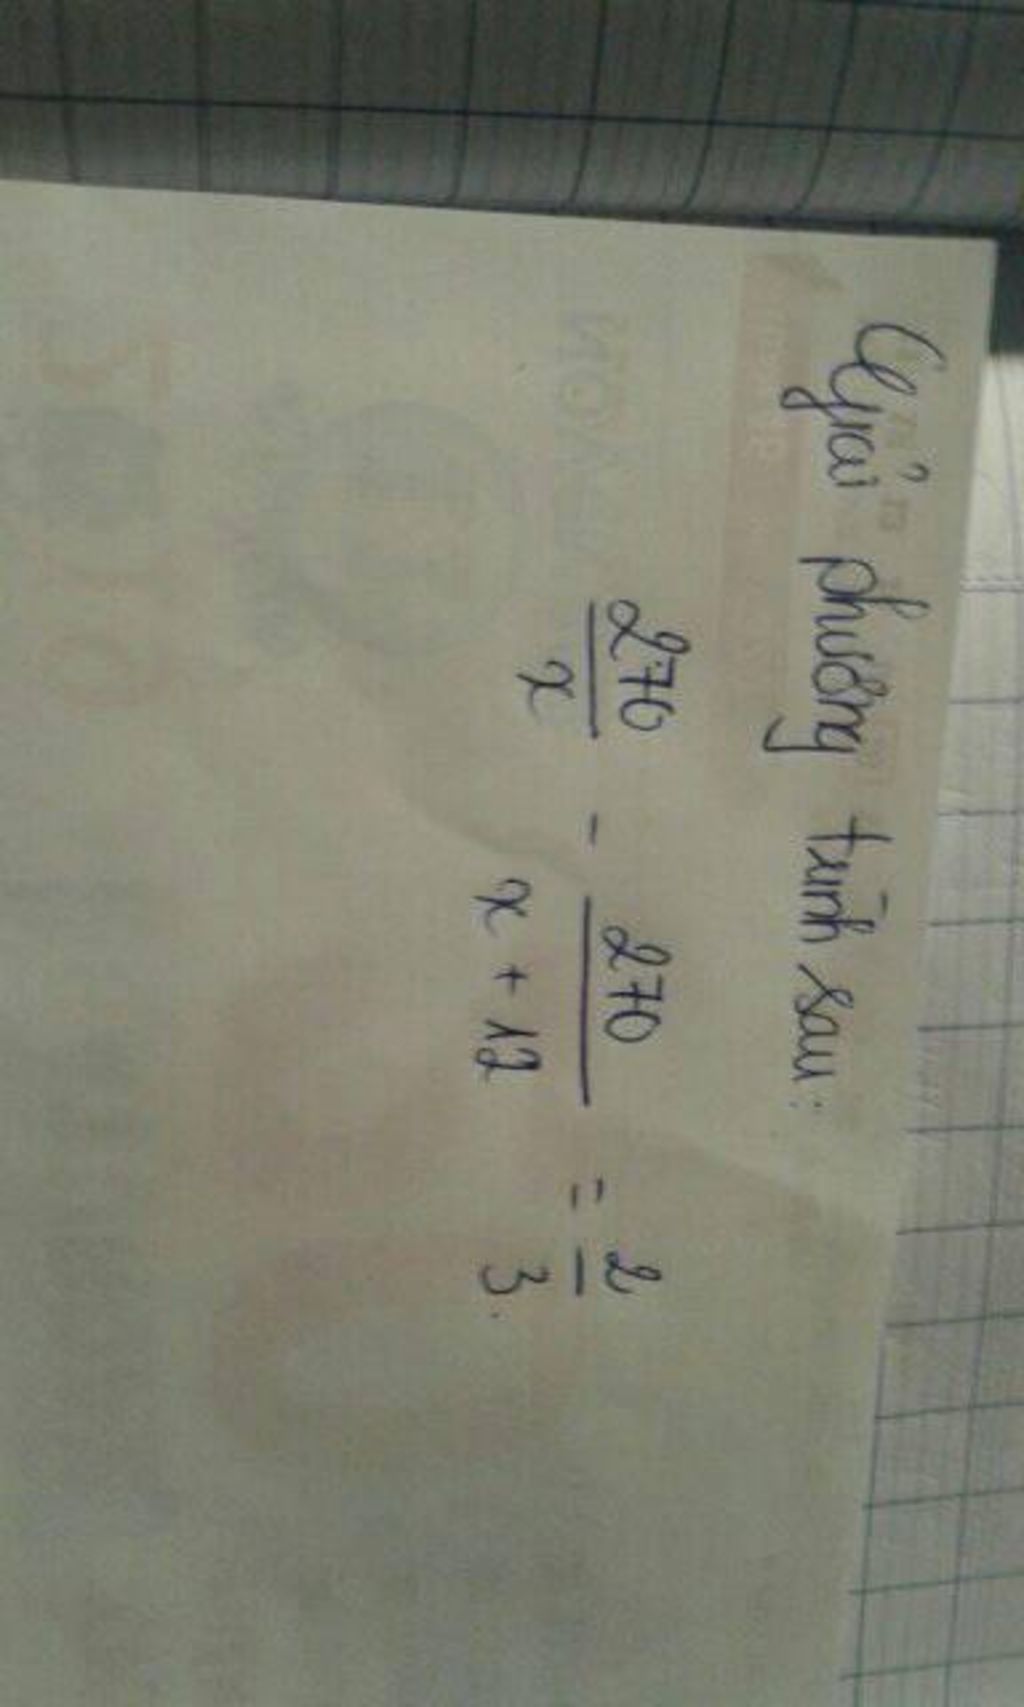 Giải phương trình sau:
270/x - 270/(x + 12) = 2/3.